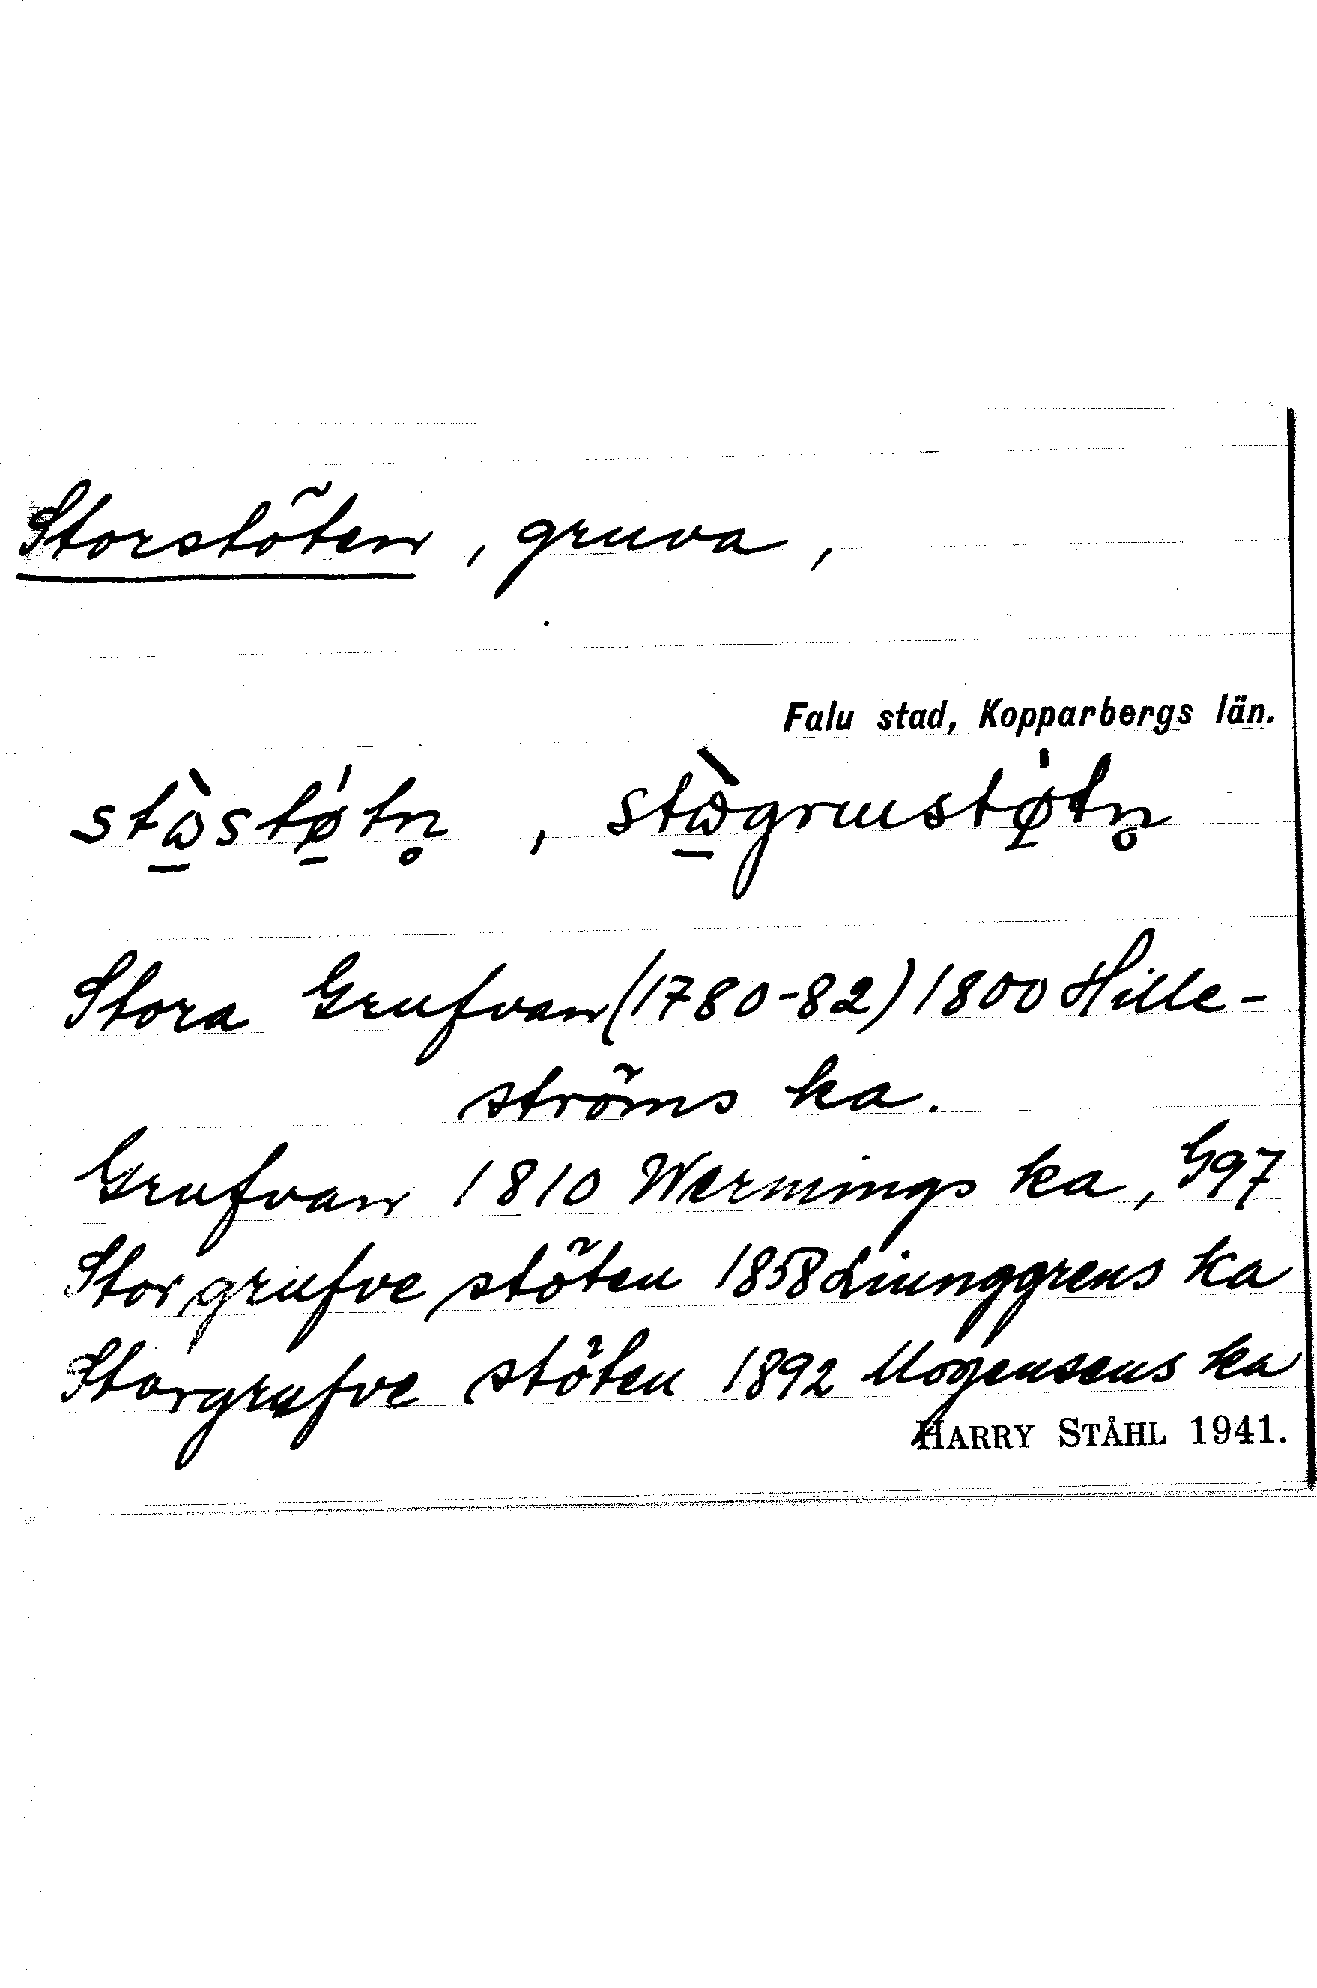 Storstöten, gruva,
Falu stad, Kopparbergs län.
stὼ̱stǿ̱tn̥, stὼ̱grustǿ̱tn̥
Stora Grufvan (1780-82) 1800 Hille-
ströms ka.
Grufvan 1810 Wernings ka, G97
Storgrufve stöten 1858 Liunggrens ka
Storgrufve stöten 1892 Mogensens ka
HARRY STÅHL 1941.